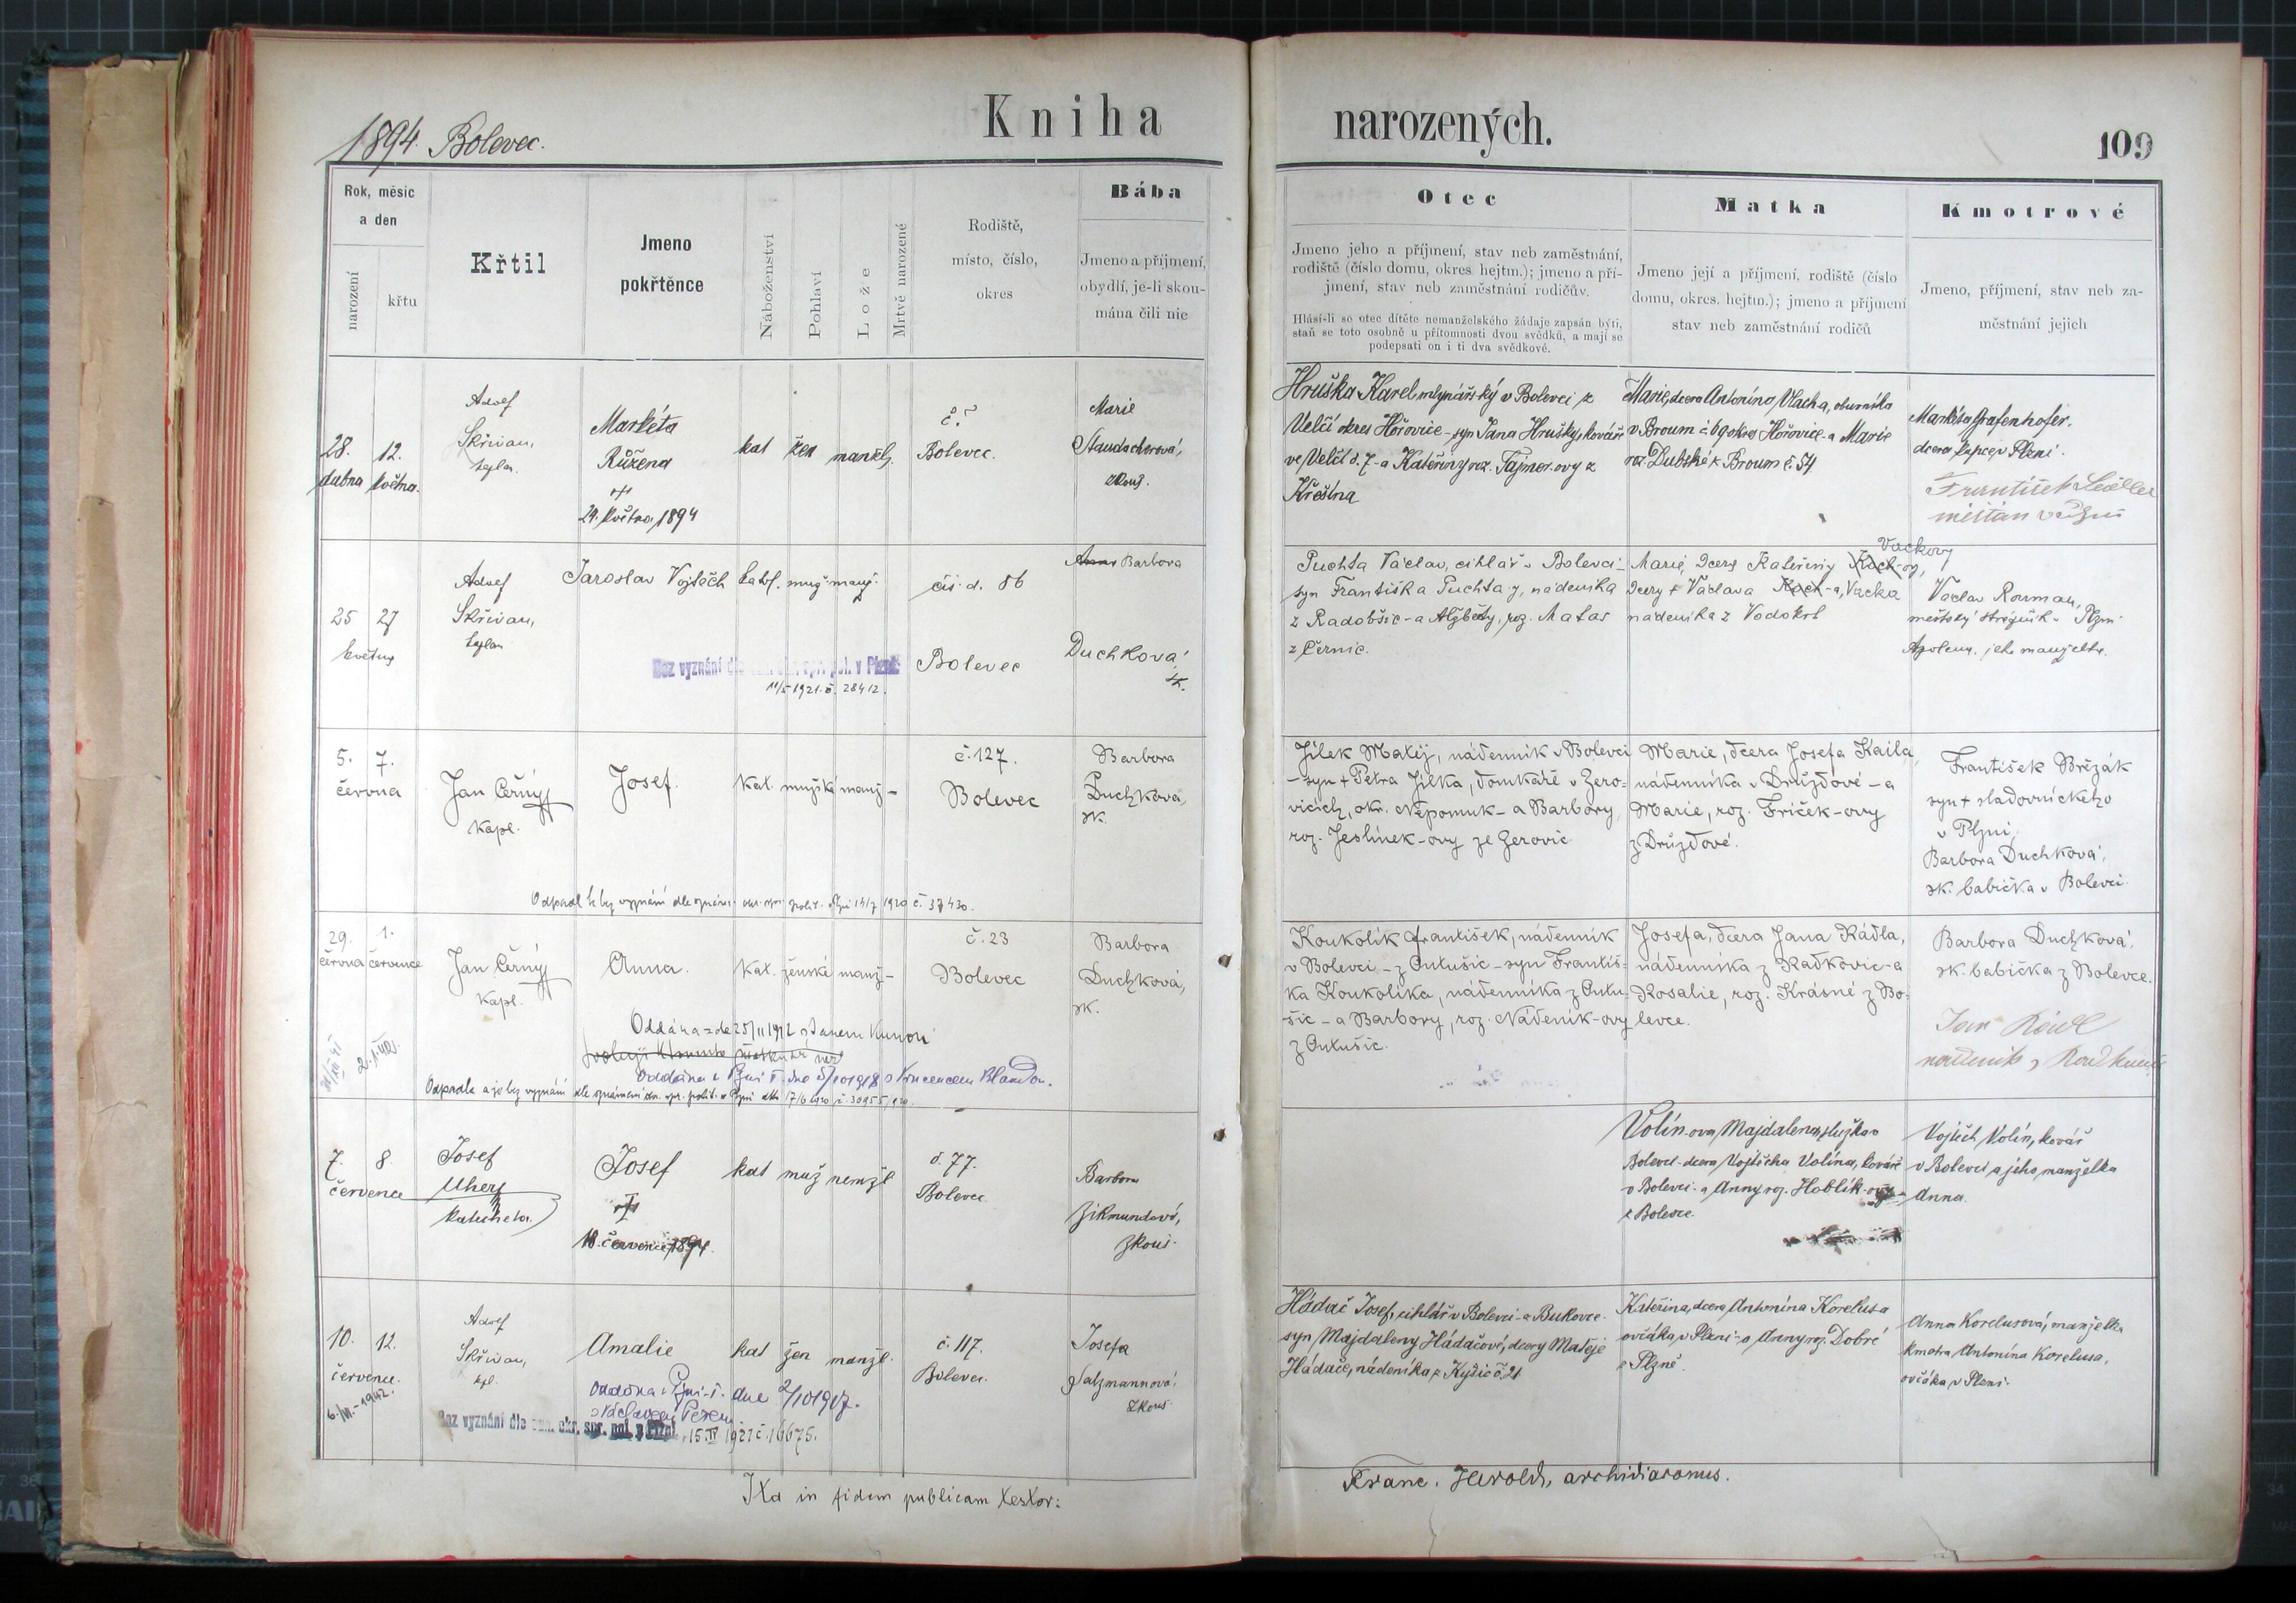 1894. Bolevec.
Kniha narozených.
109
Rok, měsíc a den
narození
křtu
Křtil
Jmeno pokřtěnce
Náboženství
Pohlaví
Lože
Mrtvě narozené
Rodiště, místo, číslo, okres
Bába
Jmeno a příjmení, obydlí, je-li skoumána čili nic
Otec
Jmeno jeho a příjmení, stav neb zaměstnání,
rodiště (číslo domu, okres hejtm.); jmeno a pří-
jmení, stav neb zaměstnání rodičův.
Hlásí-li se otec dítěte nemanželského žádaje zapsán býti,
staň se toto osobně u přítomnosti dvou svědků, a mají se
podepsati on i ti dva svědkové.
Matka
Jmeno její a příjmení, rodiště (číslo
domu, okres. hejtm.); jmeno a příjmení
stav neb zaměstnání rodičů
Kmotrové
Jmeno, příjmení, stav neb za-
městnání jejich
28. dubna
12. května.
Adolf
Skřivan,
Markéta
Růžena
24. května 1894
kat
žen
manžel.
Bolevec.
Marie
Staudacherová,
zkouš.
Hruška Karel mlynářský v Bolevci z
Velčí okres Hořovice - syn Jana Hrušky, kováře
ve Velčí č. 7 - a Kateřiny roz. Tajner-ovy z
Křešína
Marie, dcera Antonína Vlacha, obuvníka
v Broum č. 69 okres Hořovice - a Marie
roz. Dubské z Broum č. 54
Markéta Grafenhofer.
dcera kupce v Plzni.
František
měšťan
25 května
27
Adolf
Skřivan,
kaplan
Jaroslav Vojtěch
katol.
muž.
manž.
čís. d. 86
Bolevec
Anna Barbora
Duchková,
zk.
Bez vyznání dle
11/5 1921. č. 28412.
Puchta Václav, cihlář v Bolevci -
syn Františka Puchta-y, nádeníka
z Radobšic - a Alžběty, roz. Matas
z Černic.
Vackovy
Marie, dcera Kateřiny Kock-ovy,
dcery † Václava Kock-a, Vacka
nádeníka z Vodokrt
Václav Rouman,
městský strážník v Plzni
Apolena, jeho manželka.
5. června
7.
Jan Černý
kapl.
Josef.
Kat.
mužské
manž-
č. 127.
Bolevec
Barbora
Duchková,
zk.
Odpadl k bez vyznání dle 14/7 1920 č. 37430.
Jílek Matěj, nádenník v Bolevci
- syn † Petra Jílka, domkáře v Žero-
vicích, okr. Nepomuk - a Barbory,
roz. Jeslínek-ovy ze Žerovic
Marie, dcera Josefa Kaila,
nádenníka v Družďové - a
Marie, roz. Friček-ovy
z Družďové.
František Brězák
syn † sladovnického
v Plzni,
Barbora Duchková,
zk. babička v Bolevci.
29. června
1. července
Jan Černý
kapl.
Anna.
Kat.
ženské
manž-
č. 23
Bolevec
Barbora
Duchková,
zk.
Oddána v Plzni I. dne 5/10 1918 s Vincencem
Odpadla a je bez vyznání dle oznámení okr. spr. polit. v Plzni 17/6 1920 č. 30955/1920.
Koukolík František, nádenník
v Bolevci - z Outušic - syn Františ-
ka Koukolíka, nádenníka z Outu-
šic - a Barbory, roz. Nádeník-ovy
z Outušic.
Josefa, dcera Jana Rádla,
nádenníka z Radkovic - a
Rosalie, roz. Krásné z Bo-
levce.
Barbora Duchková,
zk. babička z Bolevce.
Jan
7. července
8
Josef
Uhery
katecheta.
Josef
18. července 1894.
kat
muž
nemžl
č. 77.
Bolevec
Barbora
Zikmundová,
zkouš.
Volín-ova Majdalena, služka v
Bolevci - dcera Vojtěcha Volína, kováře
v Bolevci - a Anny roz. Hoblík-ovy
z Bolevce.
Vojtěch Volín, kovář
v Bolevci a jeho manželka
Anna.
10. července.
12.
6. - 1942.
Adolf
Skřivan,
kpl.
Amalie
kat
žen
manžl.
č. 117.
Bolevec.
Josefa
Salzmannová,
zkouš
Oddána v Plzni-I. dne 2/10 1907.
s Václavem
Bez vyznání dle okr. spr. pol. v Plzni 15. IV 1921 č. 16675.
Hádač Josef, cihlář v Bolevci - a Bukovce.
syn Majdaleny Hádačové, dcery Matěje
Hádače, nádeníka z Kyšic č. 21
Kateřina, dcera Antonína Korelusa
ovčáka v Plzni - a Anny roz. Dobré
z Plzně.
Anna Korelusová, manželka
kmotra Antonína Korelusa,
ovčáka v Plzni.
Ita in fidem publicam testor:
Franc. Herold, archidiaconus.